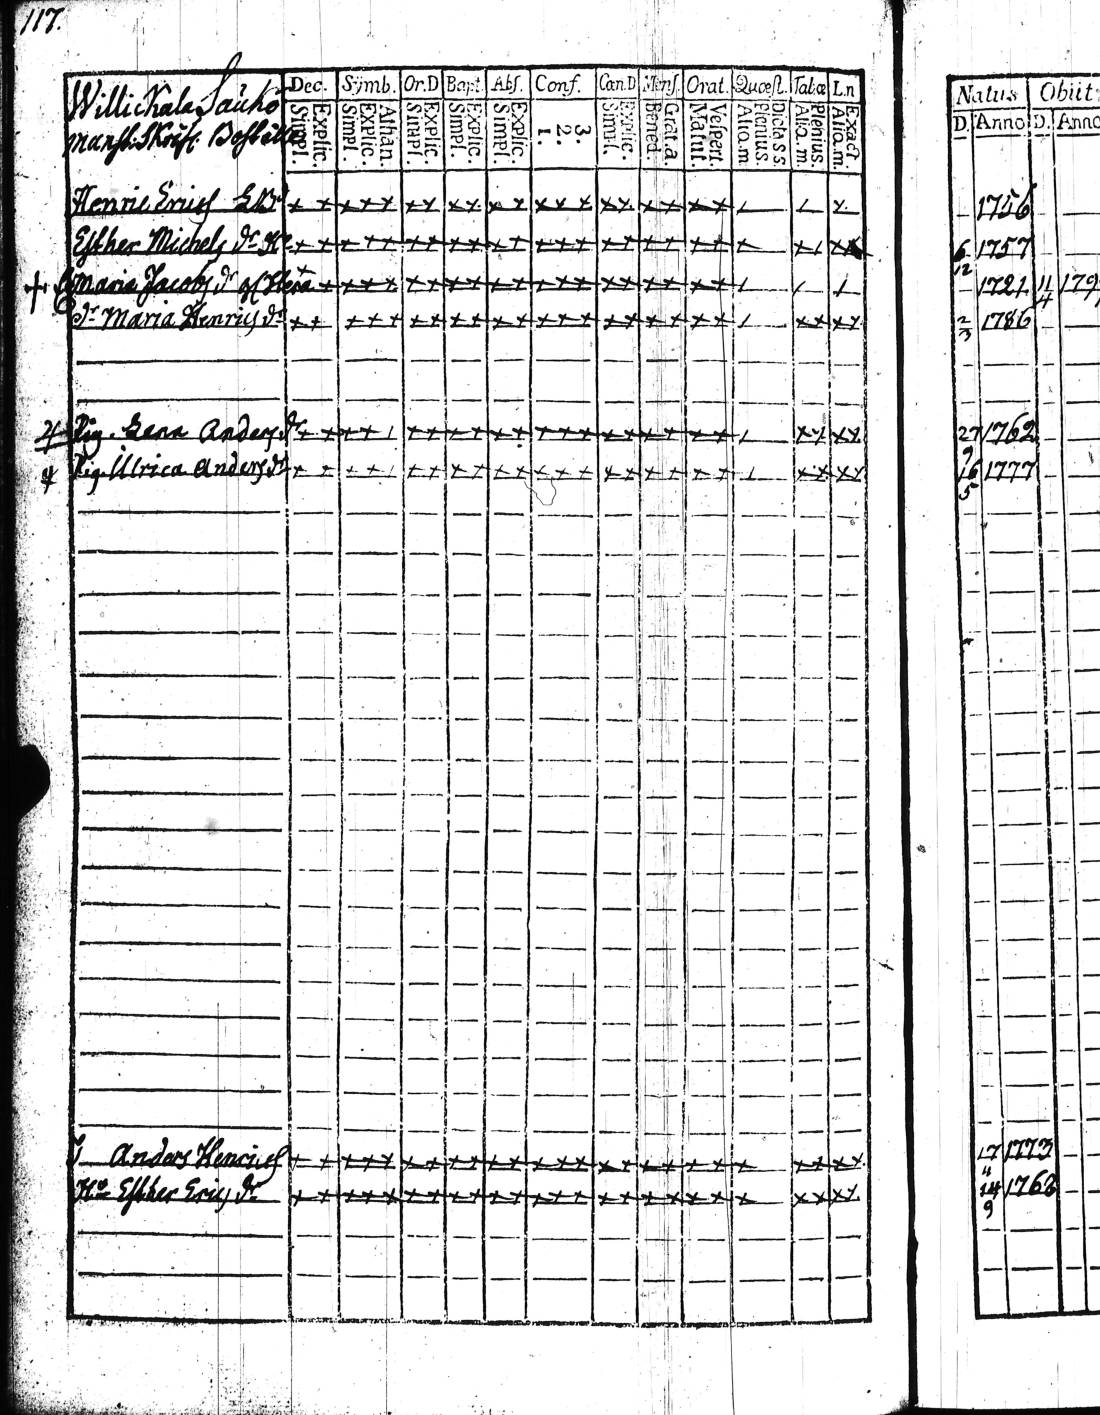 117.
Willickala Sauko
Dec. Symb. Or.D Bapt. Abs. Conf. Cœn.D Mens. Orat. Quæst. Tabæ L.n
Explic. Simpl. Athan. Explic. Simpl. Explic. Simpl. Explic. Simpl. Explic. Simpl. 3. 2. 1. Explic. Simpl. Grat.a. Bened. Vespert. Matut. Dicta s s Plenius. Alia.m. Plenius. Alia.m. Exact. Alia.m.
Natus Obiit
D. Anno D. Anno
Henric Ericss 1756
Esther Michels dr 6 12 1757
Maria Jacobs dr 1721 11 4
dr Maria Henrics dr 2 3 1786
Pig. Lena Anders dr 27 9 1762
Pig. Ulrica Anders dr 16 5 1777
Anders Henricss 17 4 1773
Hu Esther Erics dr 14 9 1762